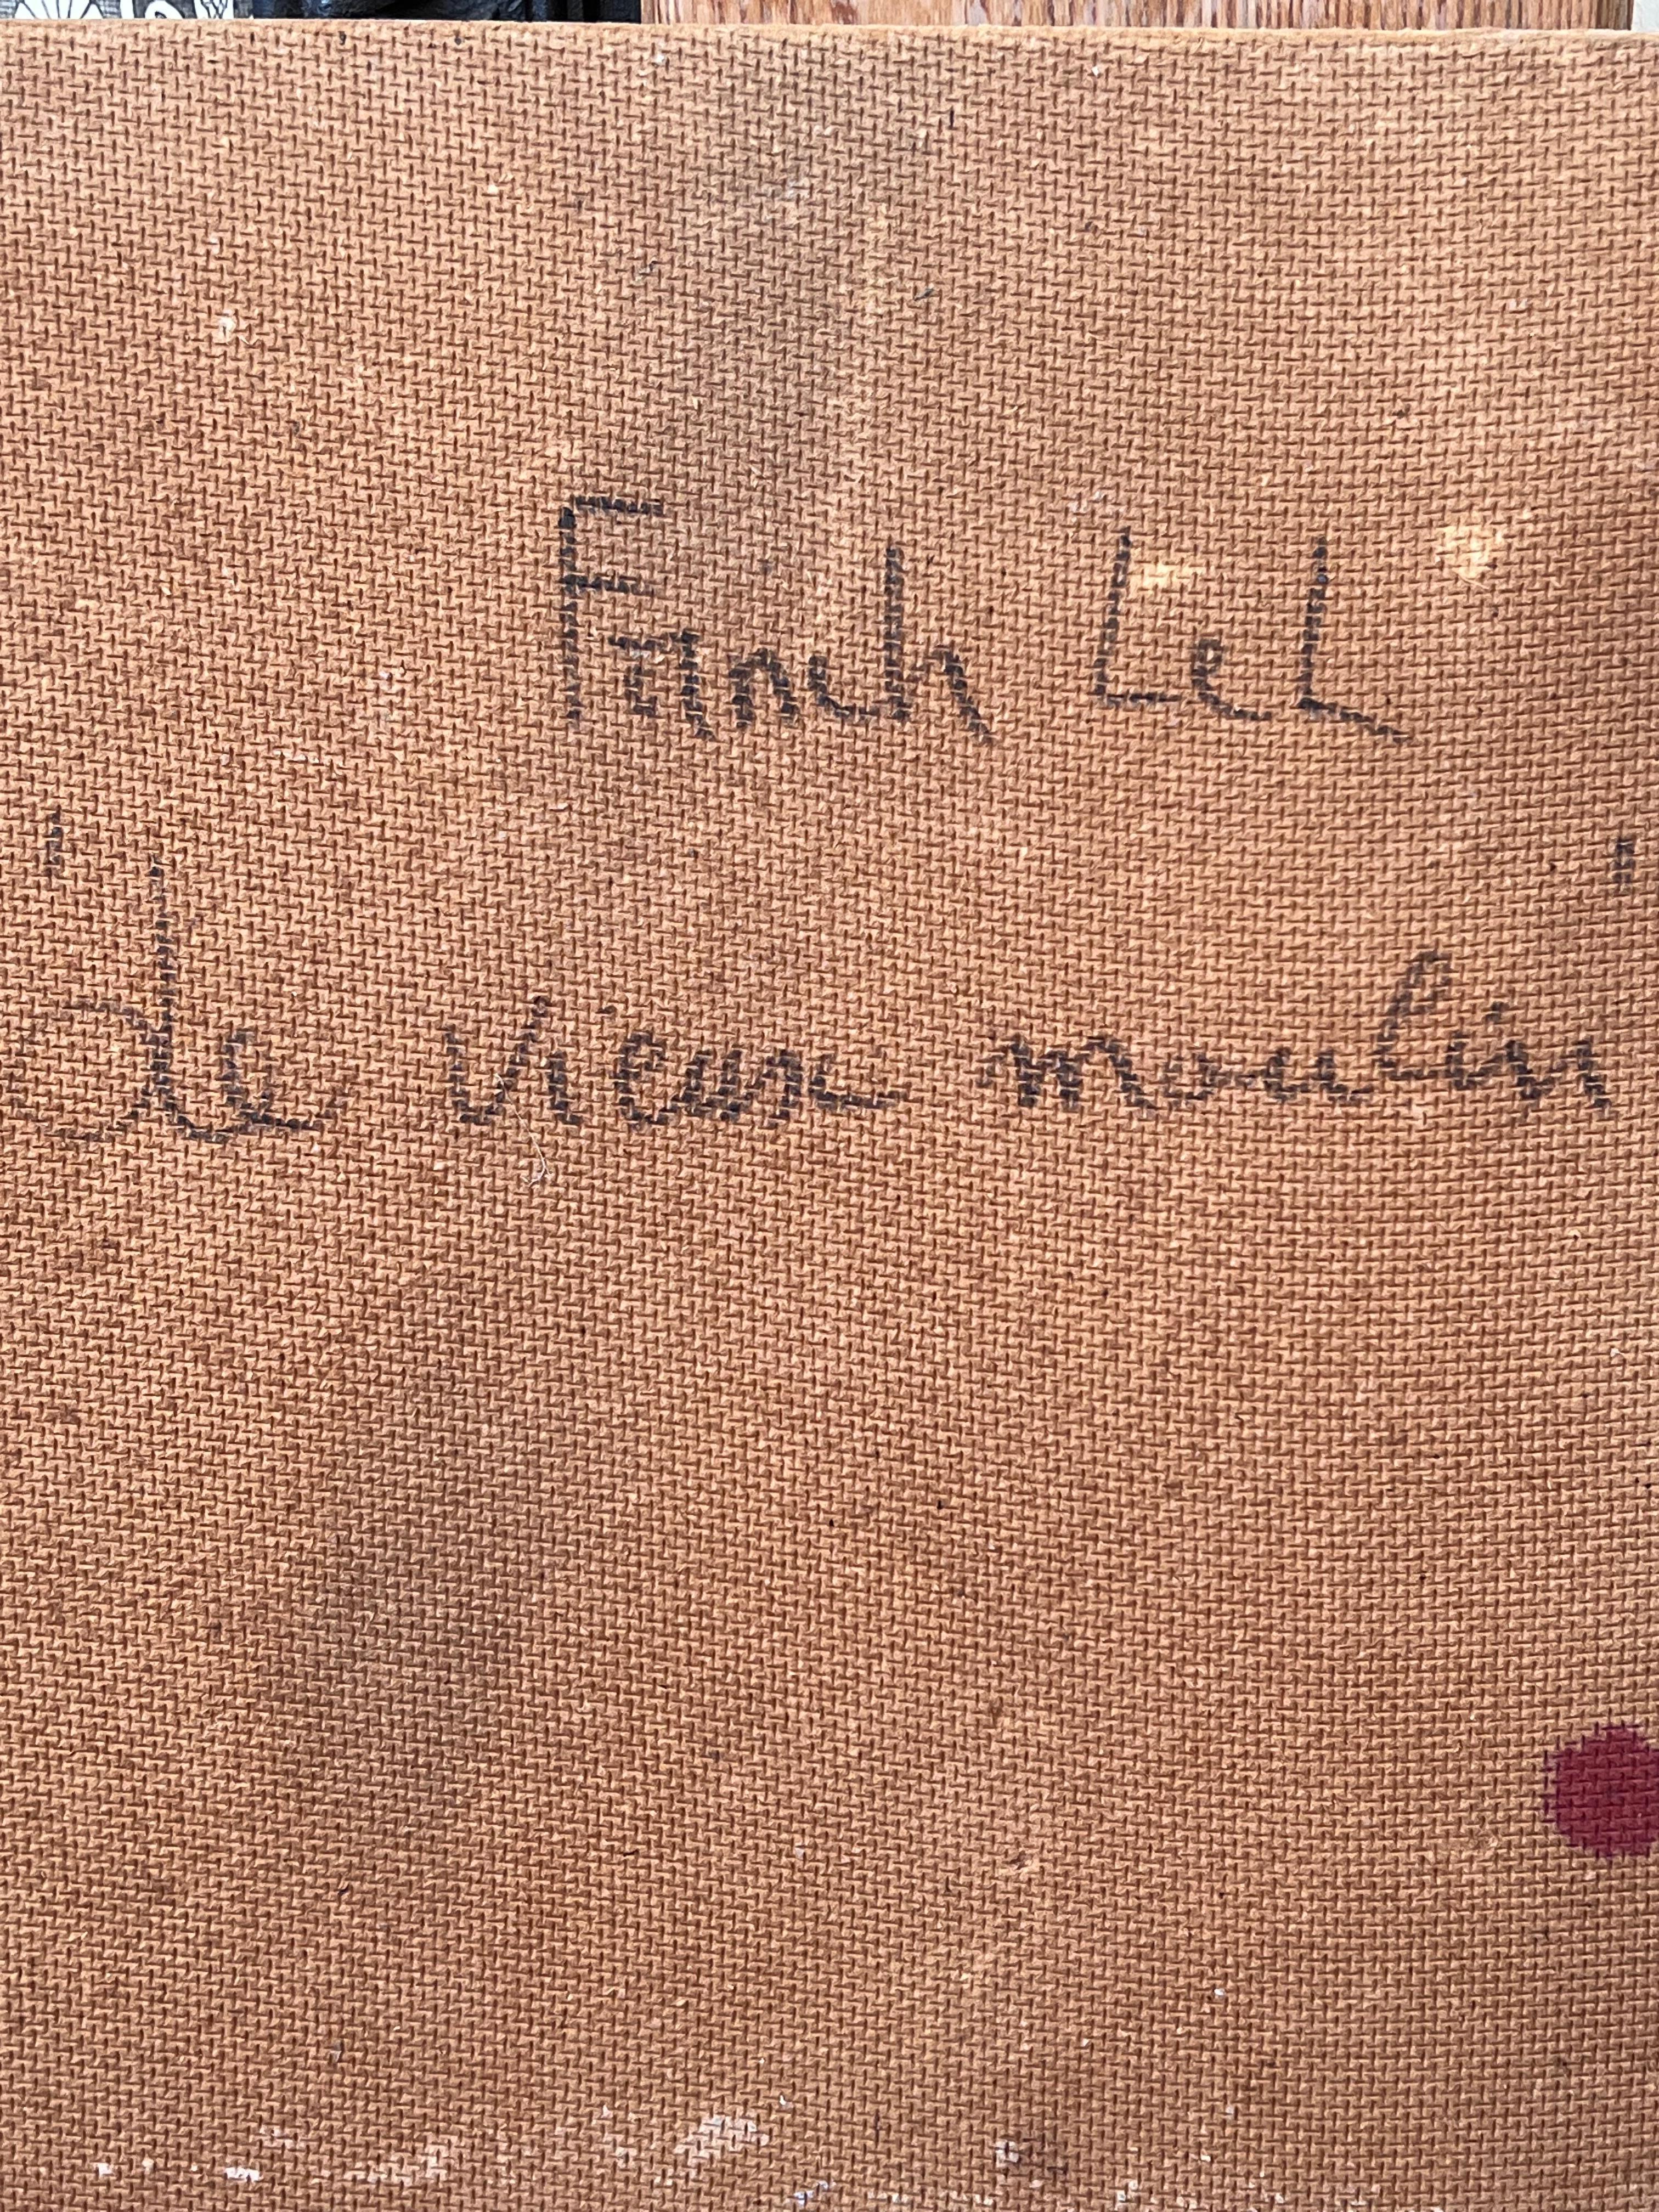 Franch LeL
"de vieux moulin"